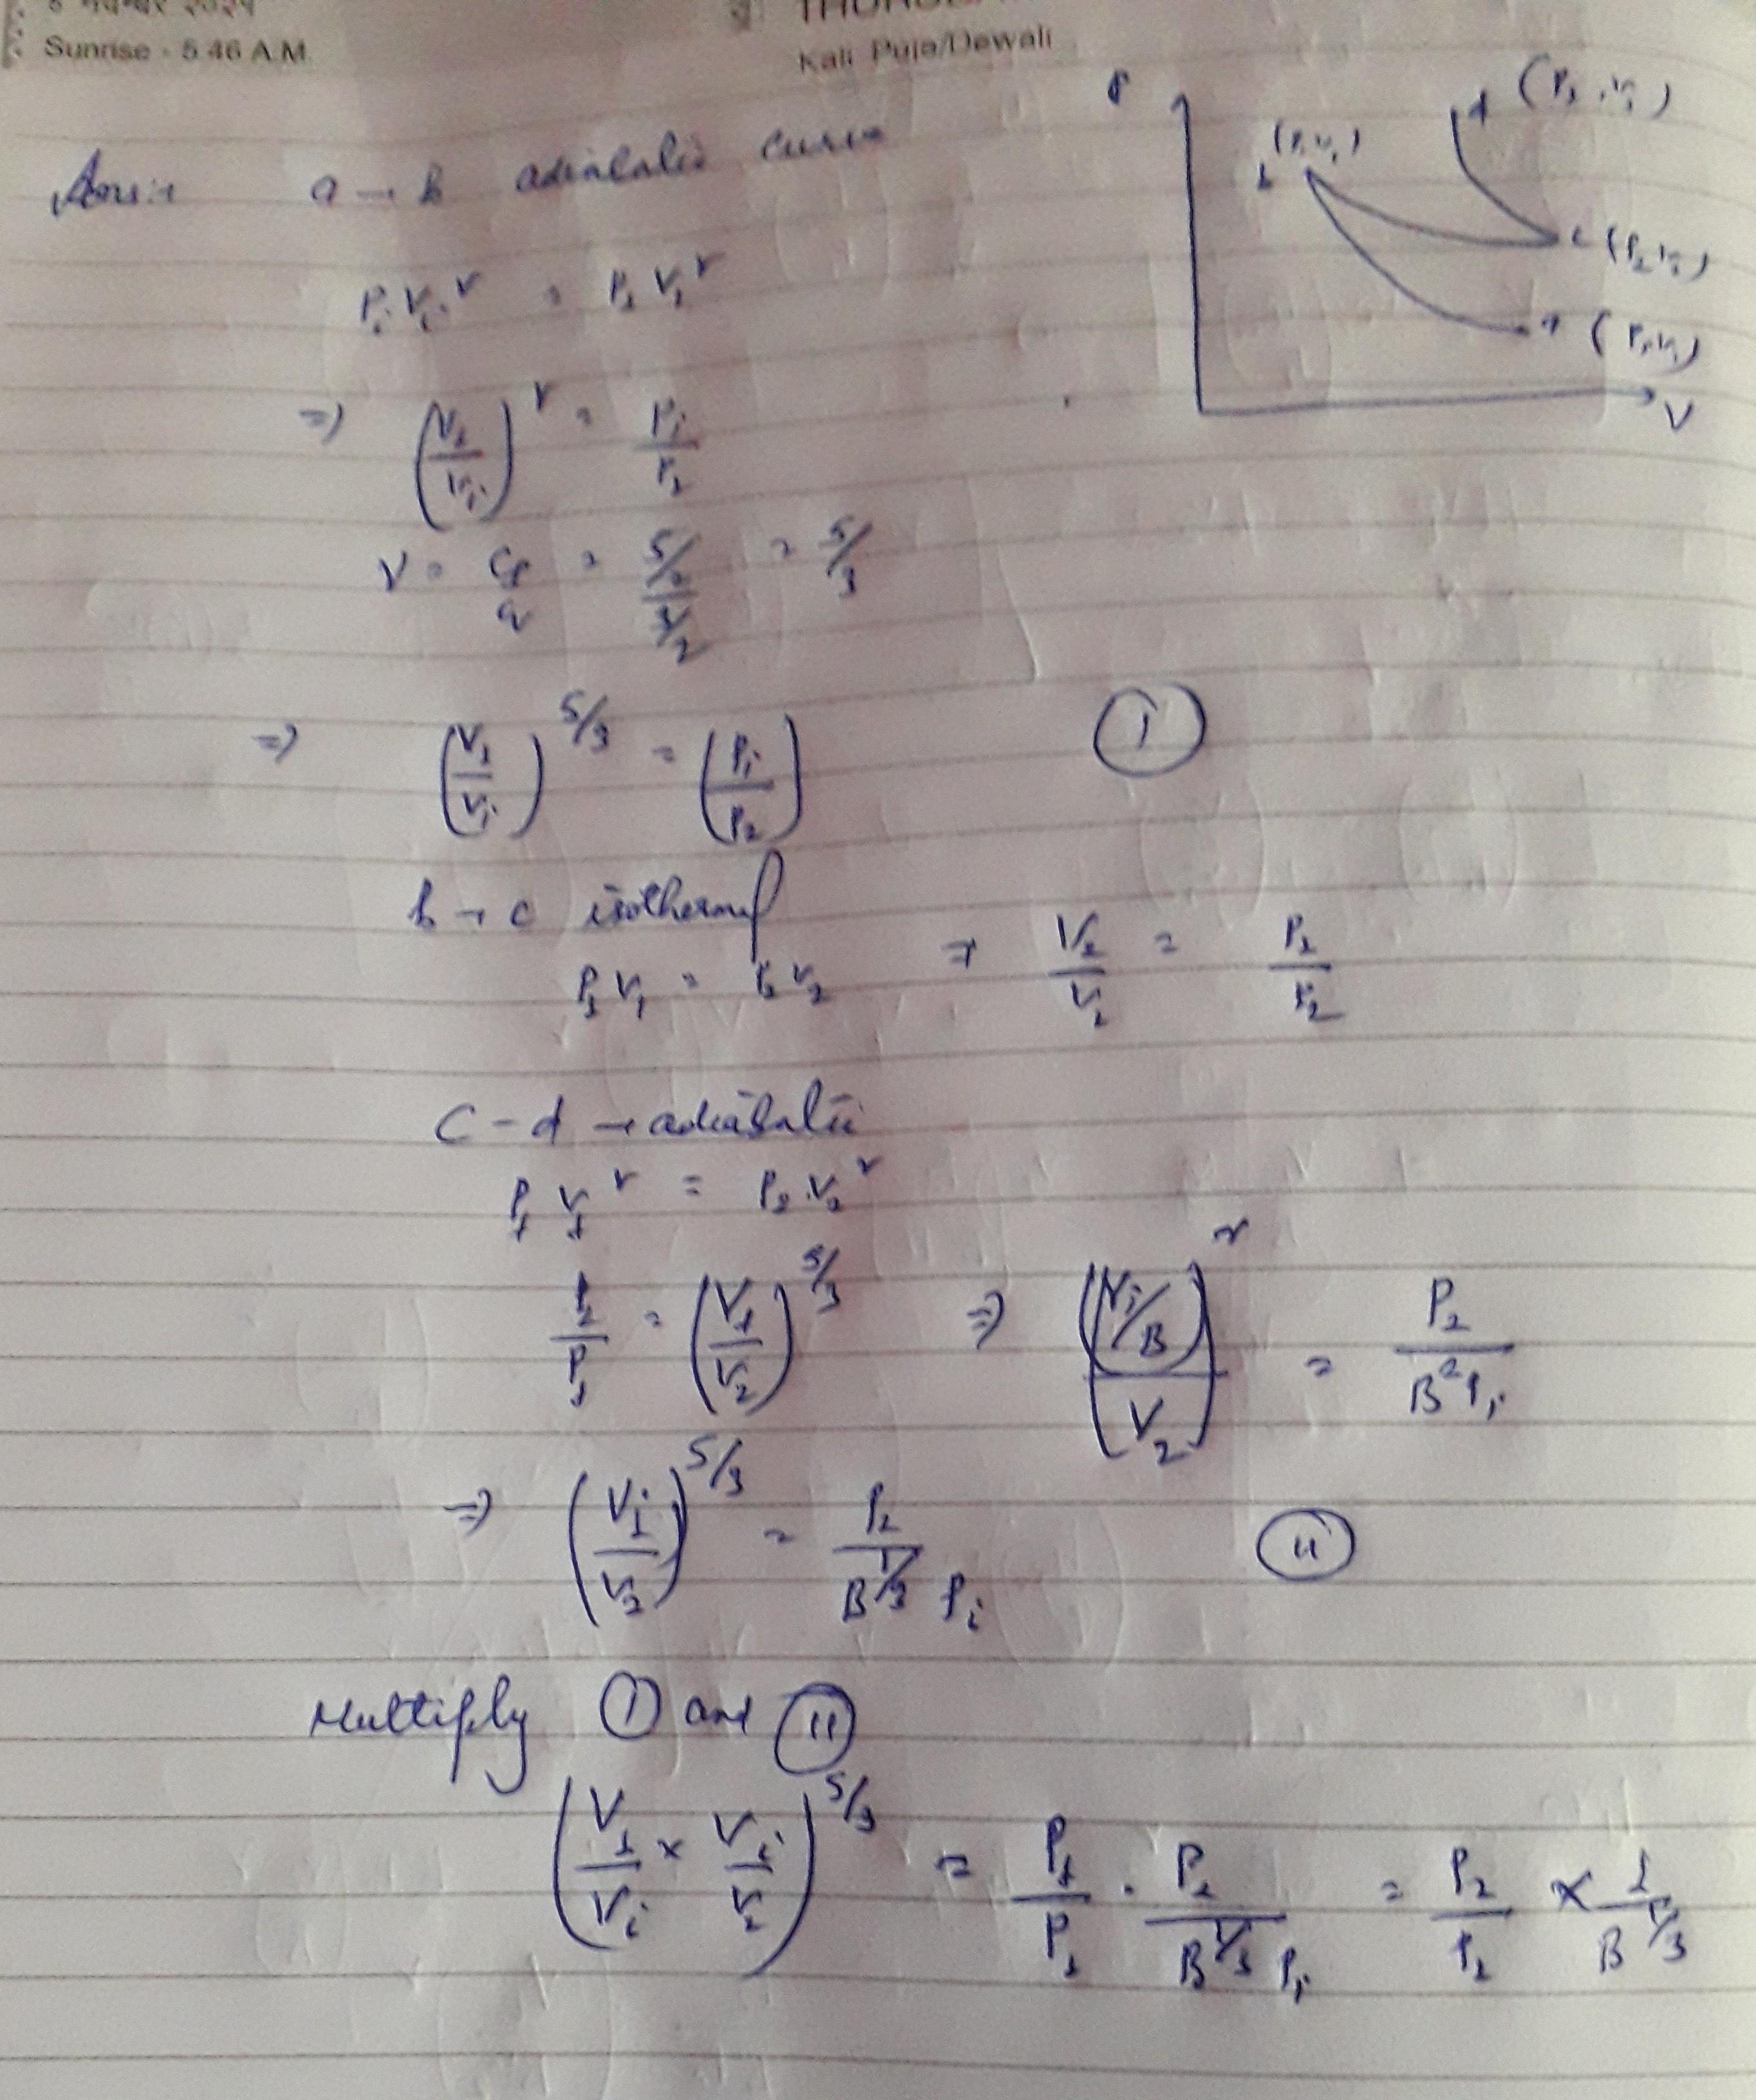 Sunrise - 5.46 A.M.
Kali Puja/Dewali
Ans:→ a → b adiabatic curve
P
b (P₁V₁)
d (Pf, Vf)
c (P₂V₂)
a (Pi, Vi)
V
Pi Vi^γ = P₁ V₁^γ
=> (V₁/Vi)^γ = Pi/P₁
γ = Cp/Cv = (5/2)/(3/2) = 5/3
=> (V₁/Vi)^5/3 = (Pi/P₁) (I)
b → c isothermal
P₁ V₁ = P₂ V₂ => V₂/V₁ = P₁/P₂
C - d → adiabatic
Pf Vf^γ = P₂ V₂^γ
P₂/Pf = (Vf/V₂)^5/3 => ((Vi/B)/V₂)^γ = P₂/B²Pi
=> (Vi/V₂)^5/3 = P₂/B^1/3 Pi (II)
Multiply (I) and (II)
(V₁/Vi × Vi/V₂)^5/3 = Pi/P₁ . P₂/B^1/3 Pi = P₂/P₁ × 1/B^1/3